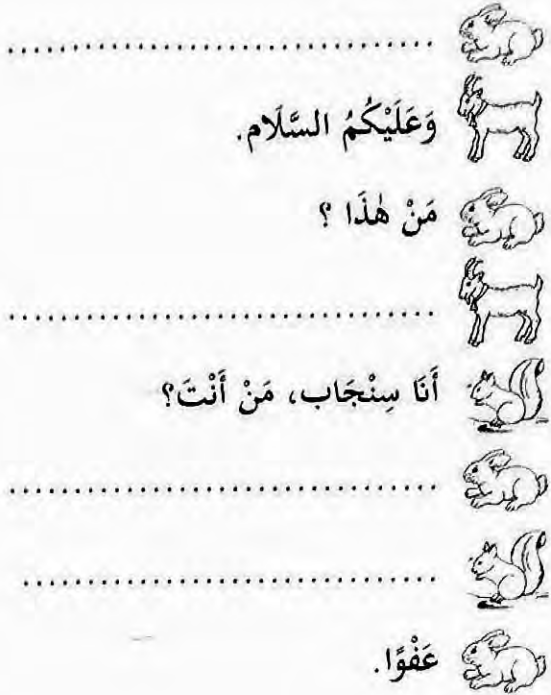 ................................
وَعَلَيْكُمُ السَّلَام.
مَنْ هٰذَا ؟
................................
أَنَا سِنْجَاب، مَنْ أَنْتَ؟
................................
...............................
عَفْوًا.